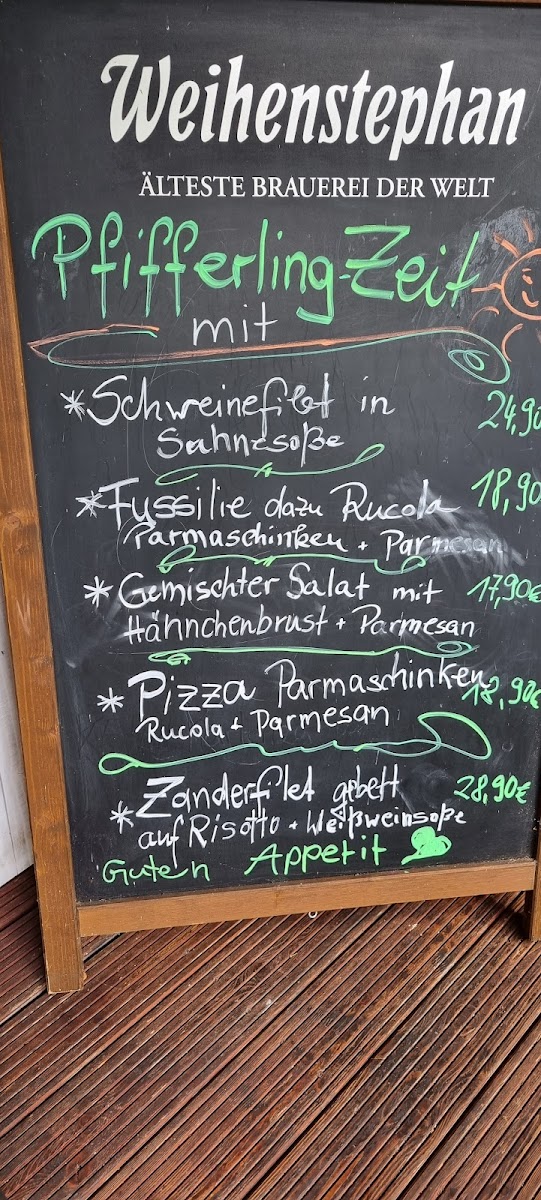 Weihenstephan
ÄLTESTE BRAUEREI DER WELT
Pfifferling-Zeit
mit
*Schweinefilet in 24,90
Sahnesoße
*Fussilie dazu Rucola 18,90
Parmaschinken + Parmesan
*Gemischter Salat mit 17,90€
Hähnchenbrust + Parmesan
*Pizza Parmaschinken 18,90€
Rucola + Parmesan
*Zanderfilet gebett 28,90€
auf Risotto + Weißweinsoße
Guten Appetit